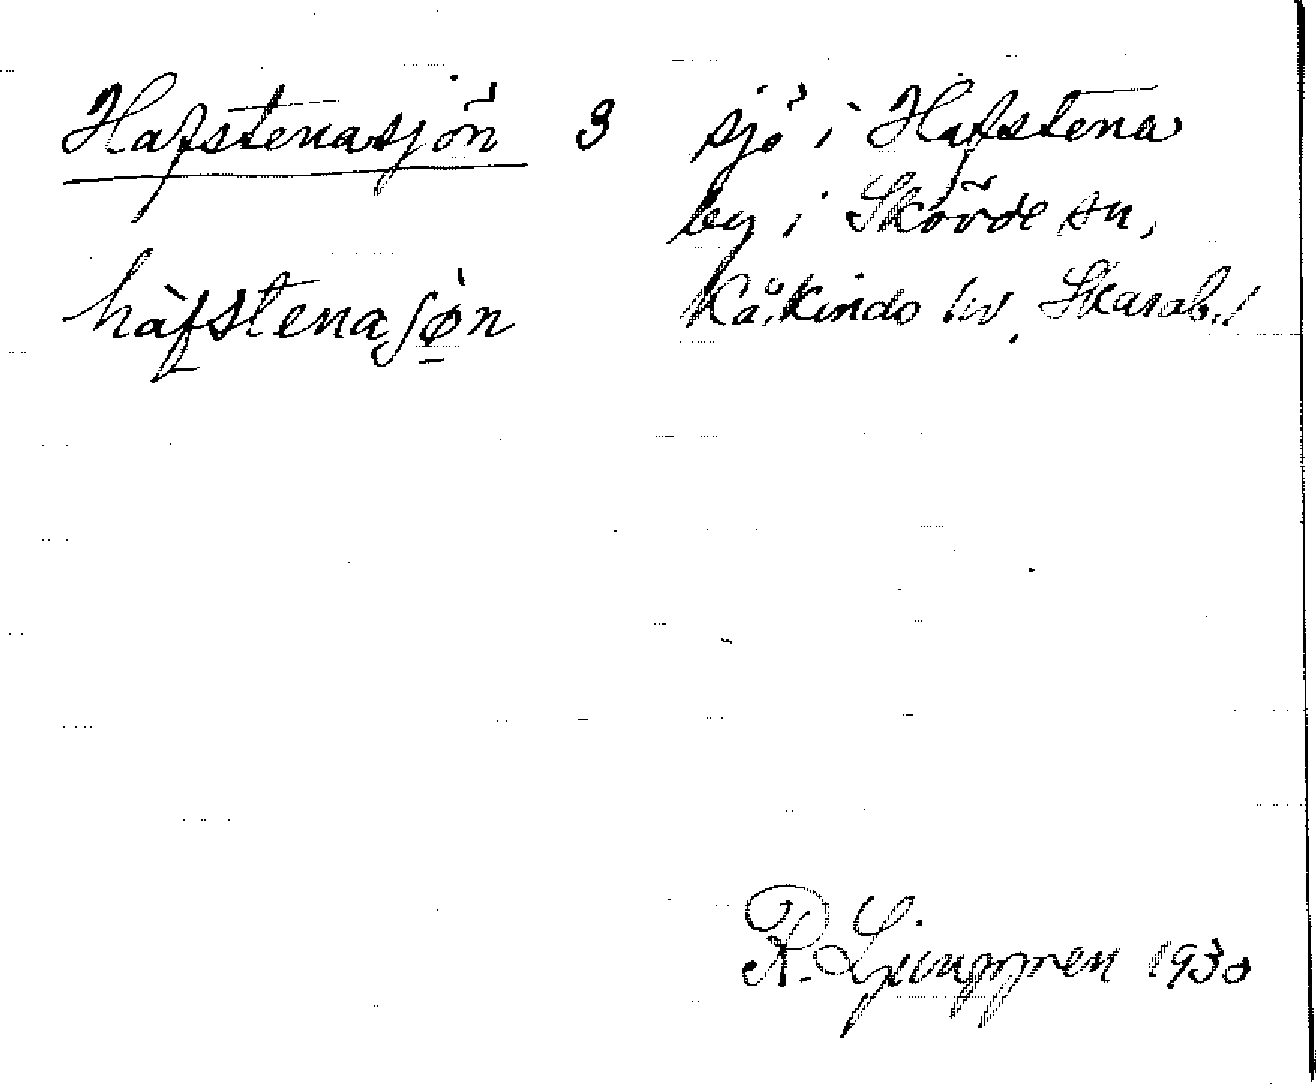 Hafstenasjön 3 sjö i Hafstena
by i Skövde sn,
Kåkindo hd. Skarab. l
hàfstenasjø̀n
R. Ljunggren 1930